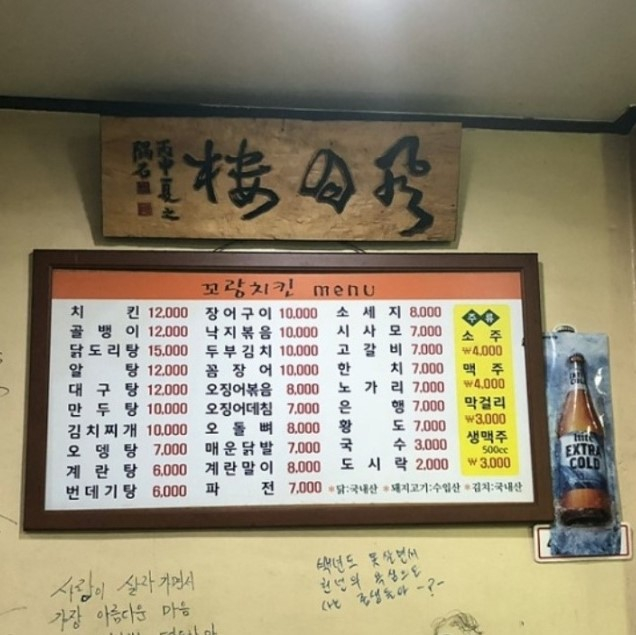 風月樓
丙申夏之
隅石
꼬랑치킨 menu
치킨 12,000
골뱅이 12,000
닭도리탕 15,000
알탕 12,000
대구탕 12,000
만두탕 10,000
김치찌개 10,000
오뎅탕 7,000
계란탕 6,000
번데기탕 6,000
장어구이 10,000
낙지볶음 10,000
두부김치 10,000
꼼장어 10,000
오징어볶음 8,000
오징어데침 7,000
오돌뼈 8,000
매운닭발 7,000
계란말이 8,000
파전 7,000
소세지 8,000
시사모 7,000
고갈비 7,000
한치 7,000
노가리 7,000
은행 7,000
황도 7,000
국수 3,000
도시락 2,000
*닭:국내산 *돼지고기:수입산 *김치:국내산
주류
소주
₩4,000
맥주
₩4,000
막걸리
₩3,000
생맥주
500cc
₩3,000
hite
EXTRA
COLD
사람이 살아가면서
가장 아름다운 마음
백년도 못살면서
천년의 욕심으로